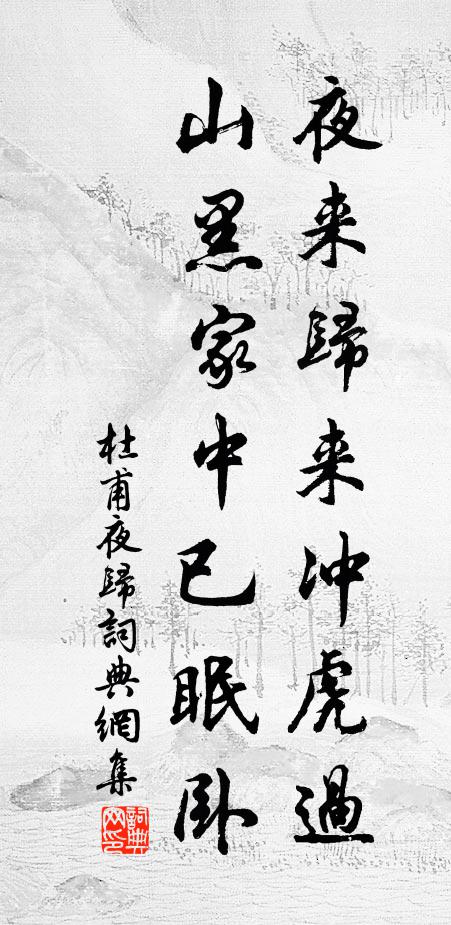 夜来歸来冲虎過
山黑家中已眠卧
杜甫夜歸詞典網集
詞典网印